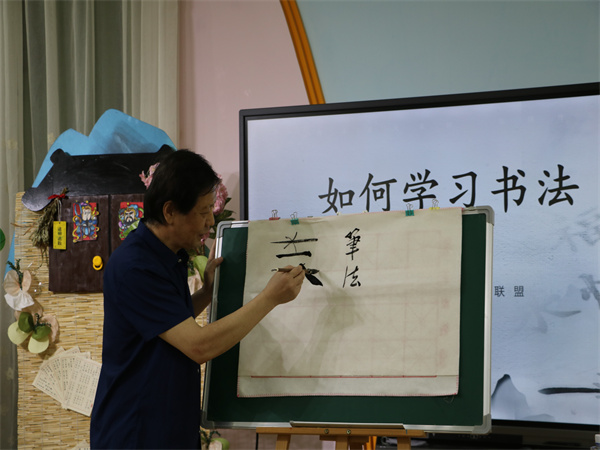 如何学习书法
筆
法
联盟